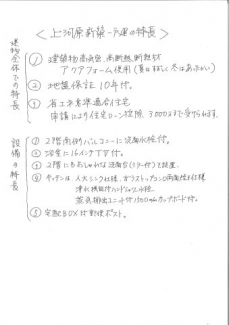 <上河原新築一戸建の特長>
建物全体での特長
① 建築物高気密、高断熱、断熱材
アクアフォーム使用(夏はすずしく冬はあったかい)
② 地盤保証10年付。
③ 省エネ基準適合住宅
申請により住宅ローン控除 3,000まで受けられます。
設備の特長
① 2階南側バルコニーに洗面水栓付。
② 浴室に16インチTV付。
③ 2階にもおしゃれな洗面台(ミラー付)を設置。
④ キッチンは、人大シンク仕様、ガラストップコンロ両面焼き仕様
浄水機能付ハンドシャワー水栓、
蒸気排出ユニット付1800mmカップボード付。
⑤ 宅配BOX付郵便ポスト。